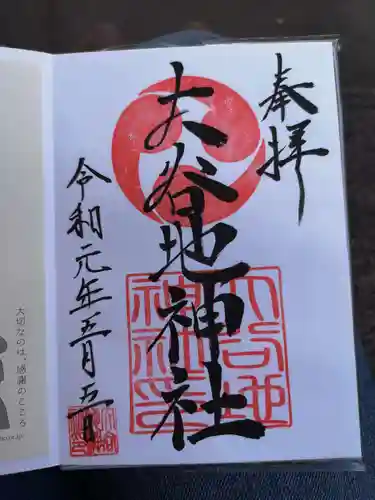 奉拝
大谷地神社
令和元年五月五日
大谷地
神社印
大切なのは、感謝のこころ